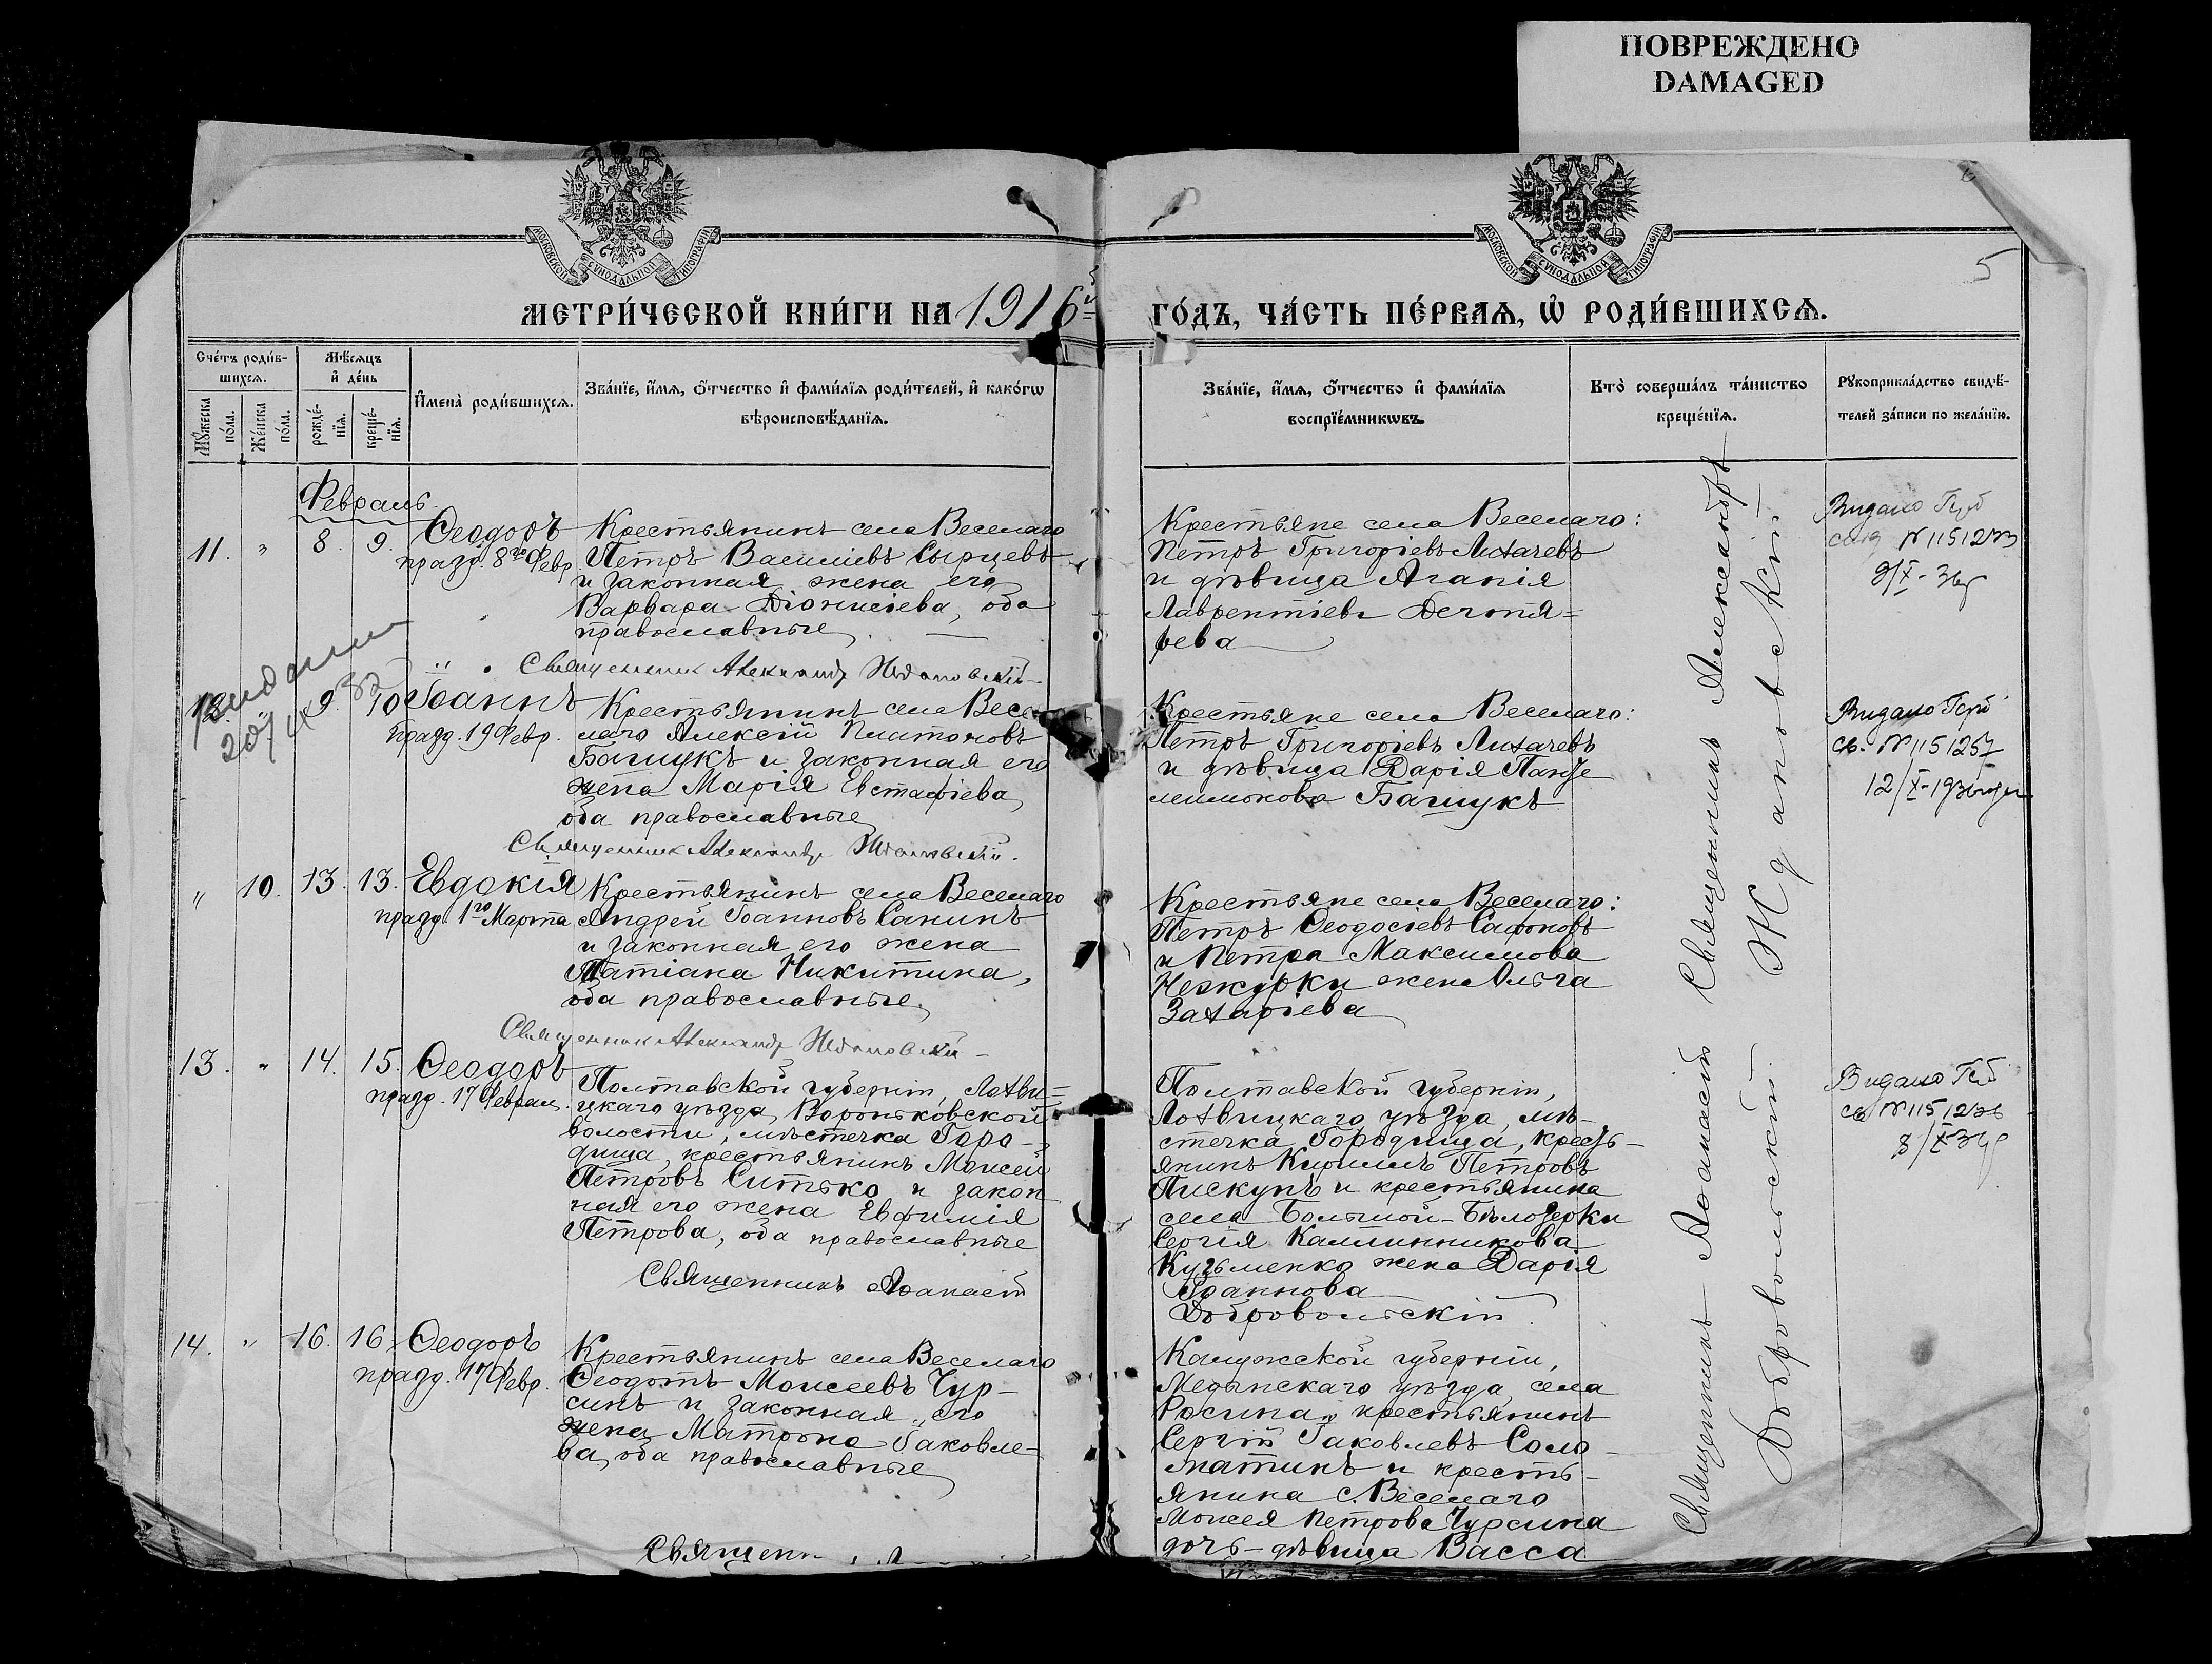 ПОВРЕЖДЕНО
DAMAGED
МОСКОВСКОЙ СѴНОДАЛЬНОЙ ТИПОГРАФІИ
МОСКОВСКОЙ СѴНОДАЛЬНОЙ ТИПОГРАФІИ
5
МЕТРИ́ЧЕСКОЙ КНИ́ГИ НА 1916й
ГО́ДЪ, ЧА́СТЬ ПЕ́РВАѦ, Ѡ҆ РОДИ́ВШИХСѦ.
Сче́тъ роди́в-
шихсѧ.
Мѣ́сѧцъ
и҆ де́нь
Мꙋ́жеска
по́ла.
Же́нска
по́ла.
рожде́-
нїѧ.
креще́-
нїѧ.
И҆мена̀ роди́вшихсѧ.
Зва́нїе, и҆́мѧ, ѻ҆́тчество и҆ фами́лїѧ роди́телей, и҆ како́гѡ
вѣроисповѣ́данїѧ.
Зва́нїе, и҆́мѧ, ѻ҆́тчество и҆ фами́лїѧ
воспрїе́мникѡвъ.
Кто̀ соверша́лъ та́инство
креще́нїѧ.
Рꙋкоприкла́дство свидѣ́-
телей за́писи по жела́нїю.
Февраль
11. " 8. 9. Ѳеодоръ
празд. 8го Февр.
Крестьянинъ села Веселаго
Петръ Василіевъ Сырцевъ
и законная жена его
Варвара Діонисіева, оба
православные
Священникъ Александръ Ждановскій
Крестьяне села Веселаго:
Петръ Григоріевъ Лихачевъ
и дѣвица Агапія
Лаврентіева Дегтя-
рева
Видано Герб
№ 11512
9/X-36
Видано
9. 10 Іоаннъ
празд. 19 Февр.
Крестьянинъ села Весе-
лаго Алексій Платоновъ
Башукъ и законная его
жена Марія Евстафіева,
оба православные
Священникъ Александръ Ждановскій.
Крестьяне села Веселаго:
Петръ Григоріевъ Лихачевъ
и дѣвица Дарія Панте-
леимонова Башукъ
Видано Герб
св. № 115 1257
12/X-1936
" 10. 13. 13. Евдокія
празд. 1го Марта
Крестьянинъ села Веселаго
Андрей Іоанновъ Санинъ
и законная его жена
Татіана Никитина,
оба православные.
Священникъ Александръ Ждановскій
Крестьяне села Веселаго:
Петръ Ѳеодосіевъ Сафоновъ
и Петра Максимова
Нежурки жена Ольга
Захаріева
13. " 14. 15. Ѳеодоръ
празд. 17 Феврал.
Полтавской губерніи, Лохви-
цкаго уѣзда, Вороньковской
волости, мѣстечка Горо-
дища, крестьянинъ Моисей
Петровъ Ситько и закон-
ная его жена Евфимія
Петрова, оба православные
Священникъ Аѳанасій
Полтавской губерніи,
Лохвицкаго уѣзда, мѣ-
стечка Городища, кресть-
янинъ Кириллъ Петровъ
Пискунъ и крестьянина
села Большой-Бѣлозерки
Сергія Каллинникова
Кузьменко жена Дарія
Іоаннова
Добровольскій.
Видано Герб
св № 115 12
8/X-36
14. " 16. 16. Ѳеодоръ
празд. 17 Февр.
Крестьянинъ села Веселаго
Ѳеодотъ Моисеевъ Чур-
синъ и законная его
жена Матрона Іаковле-
ва, оба православные
Священ
Калужской губерніи,
Медынскаго уѣзда, села
Росина, крестьянинъ
Сергій Іаковлевъ Соло-
матинъ и кресть-
янина с. Веселаго
Моисея Петрова Чурсина
дочь-дѣвица Васса
Священникъ Александръ
Ждановскій
Священникъ Аѳанасій
Добровольскій.